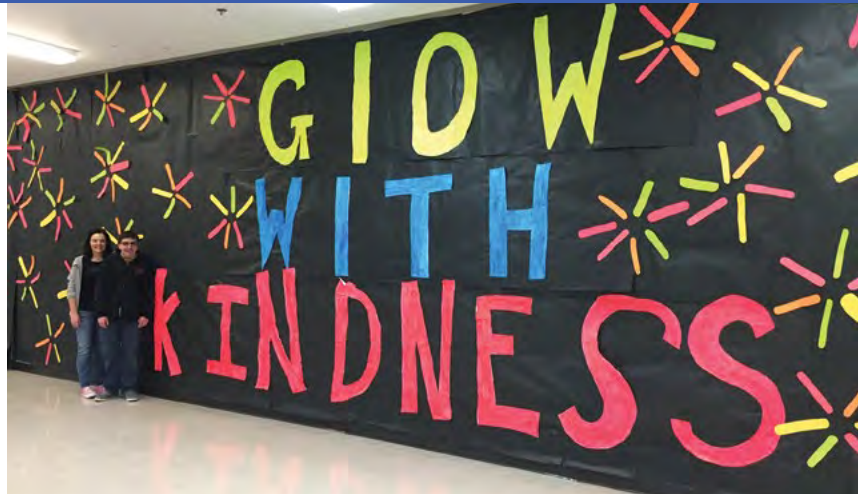 GlOW
WITH
KINDNESS